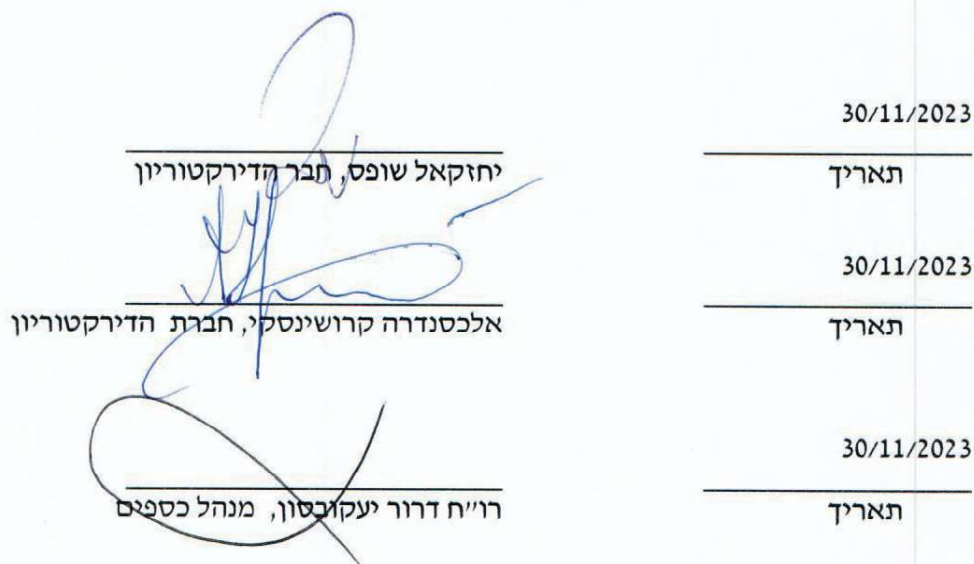 30/11/2023
תאריך יחזקאל שופס, חבר הדירקטוריון
30/11/2023
תאריך אלכסנדרה קרושינסקי, חברת הדירקטוריון
30/11/2023
תאריך רו״ח דרור יעקובסון, מנהל כספים